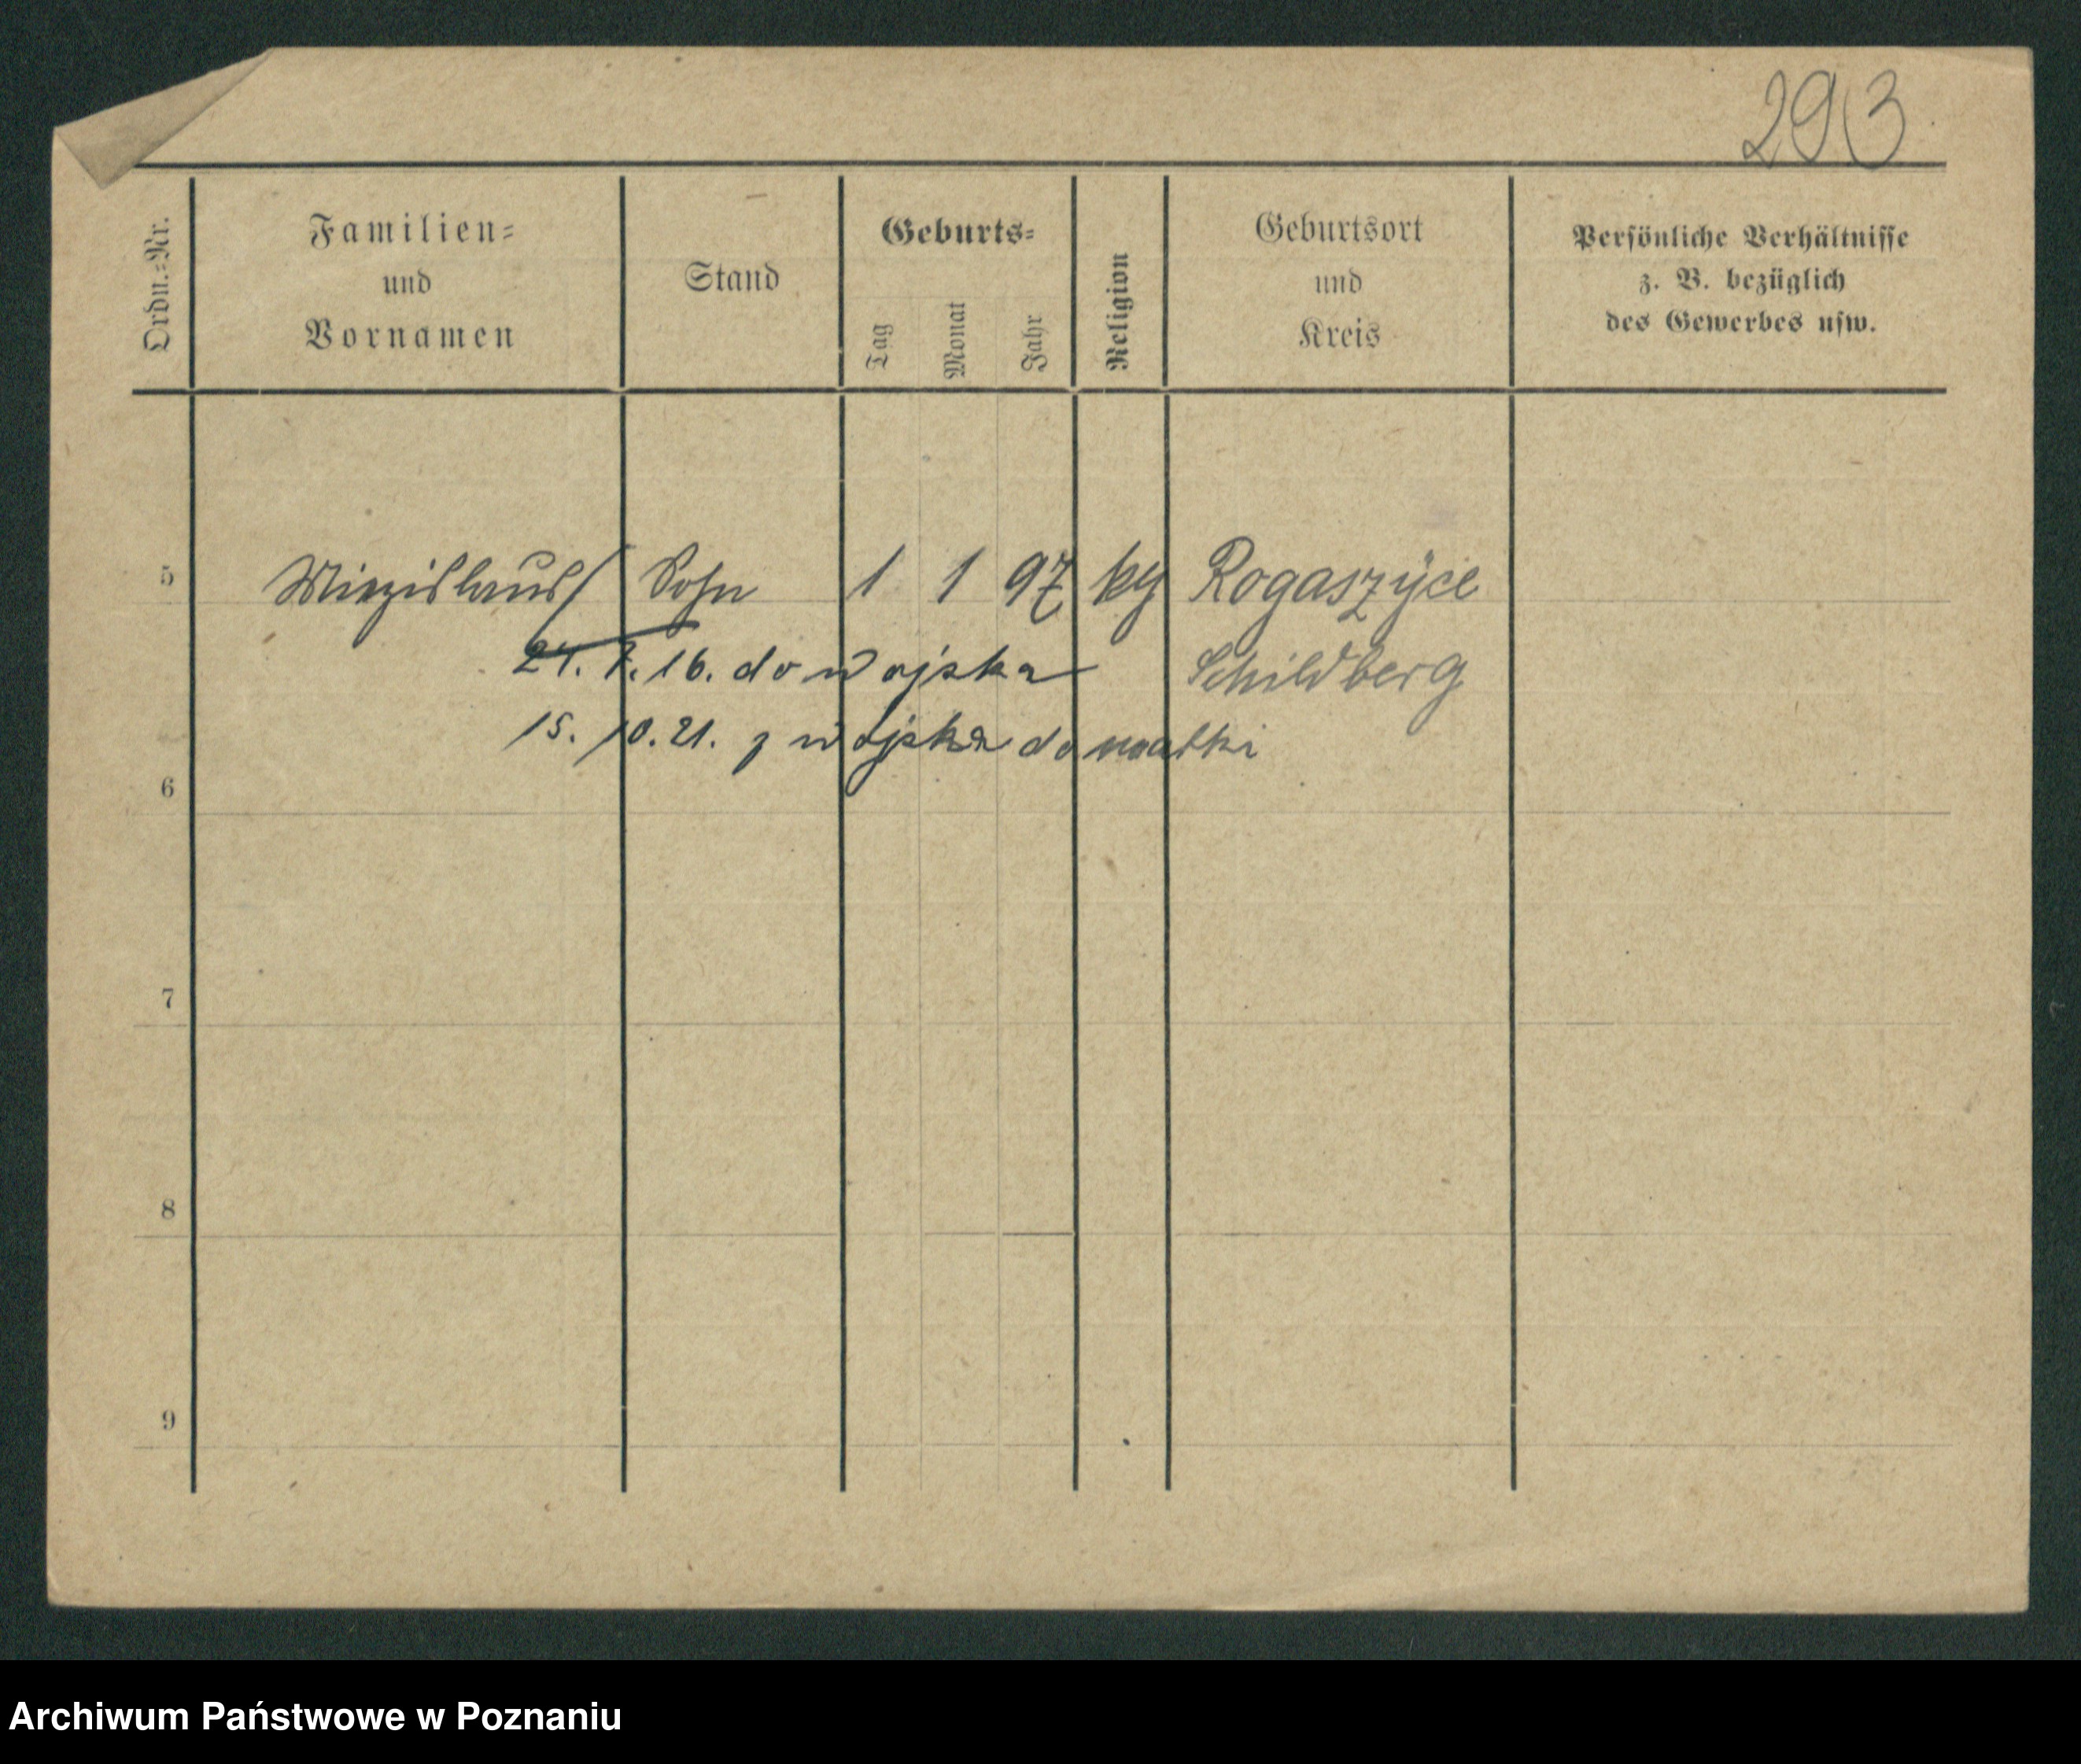 293
Ordn.-Nr.
Familien-
und
Vornamen
Stand
Geburts-
Tag
Monat
Jahr
Religion
Geburtsort
und
Kreis
Persönliche Verhältnisse
z. B. bezüglich
des Gewerbes usw.
5 Miezislaus Sohn 1 1 97 Rogaszyce
24. 7. 16. do wojska Schildberg
15. 10. 21. z wojska do matki
6
7
8
9
Archiwum Państwowe w Poznaniu